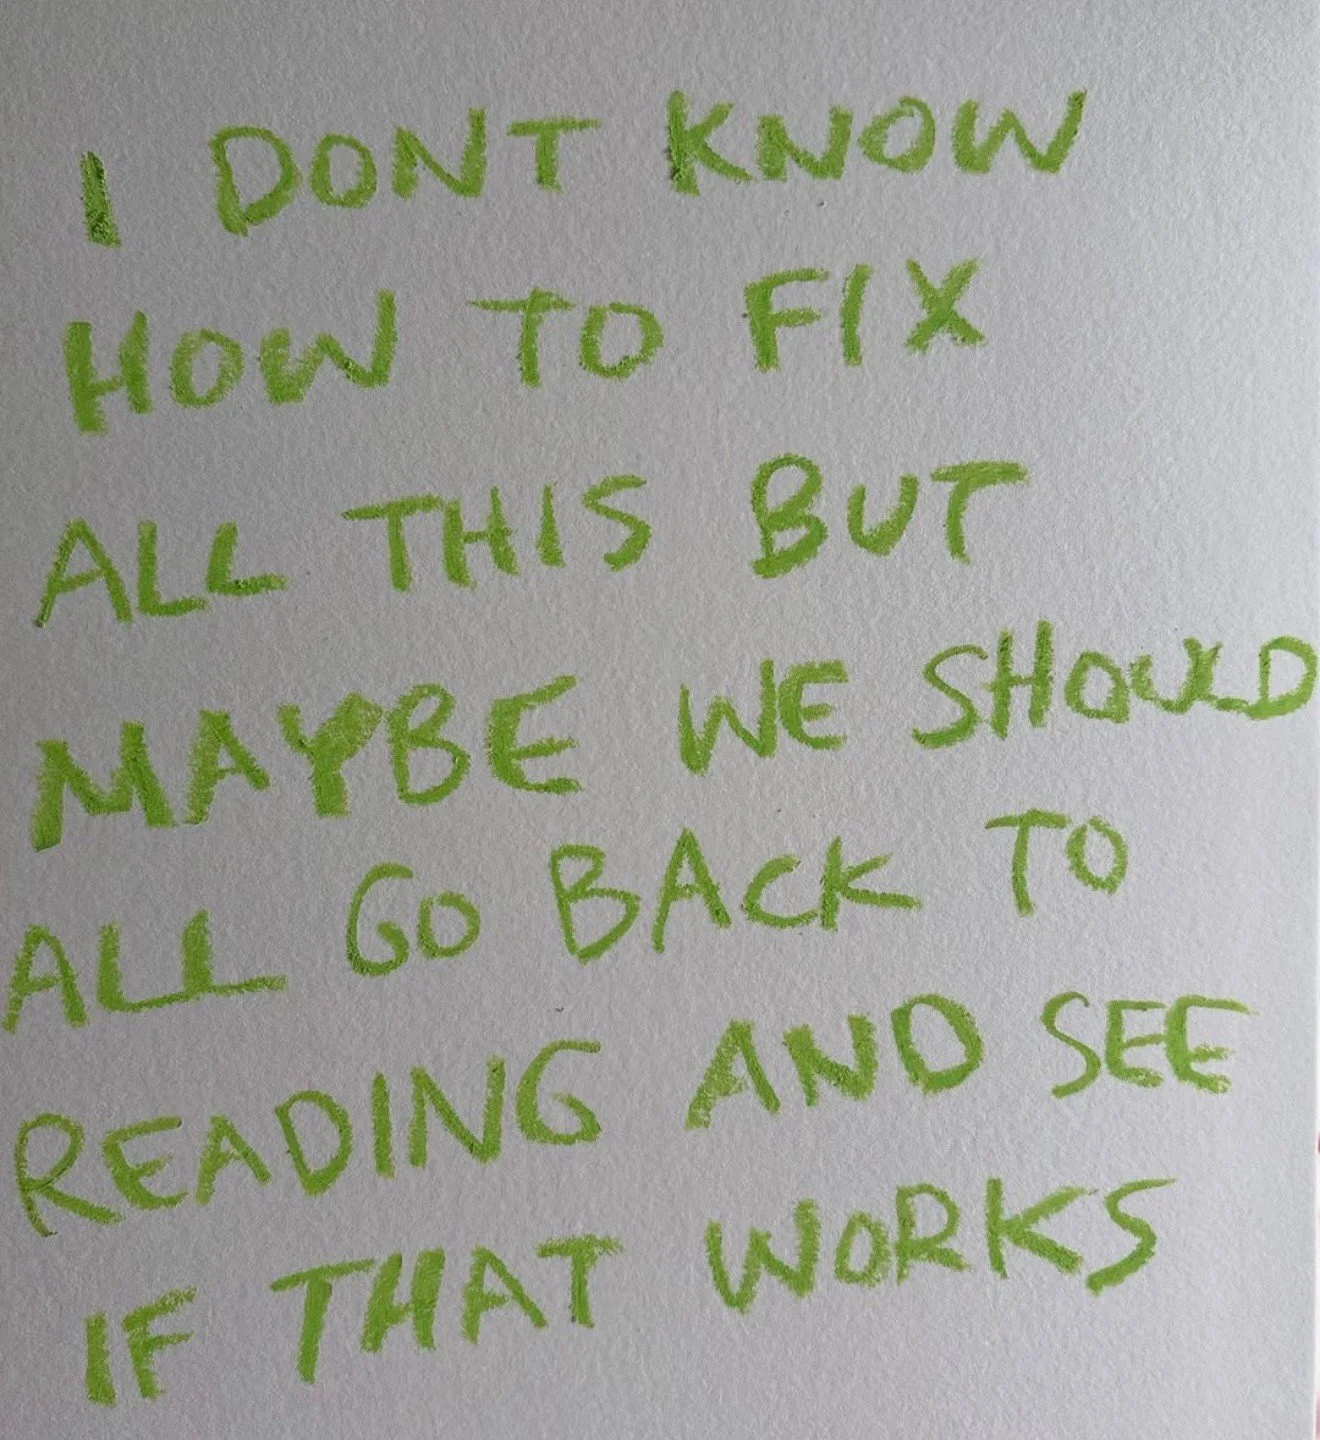 I DONT KNOW
HOW TO FIX
ALL THIS BUT
MAYBE WE SHOULD
ALL GO BACK TO
READING AND SEE
IF THAT WORKS